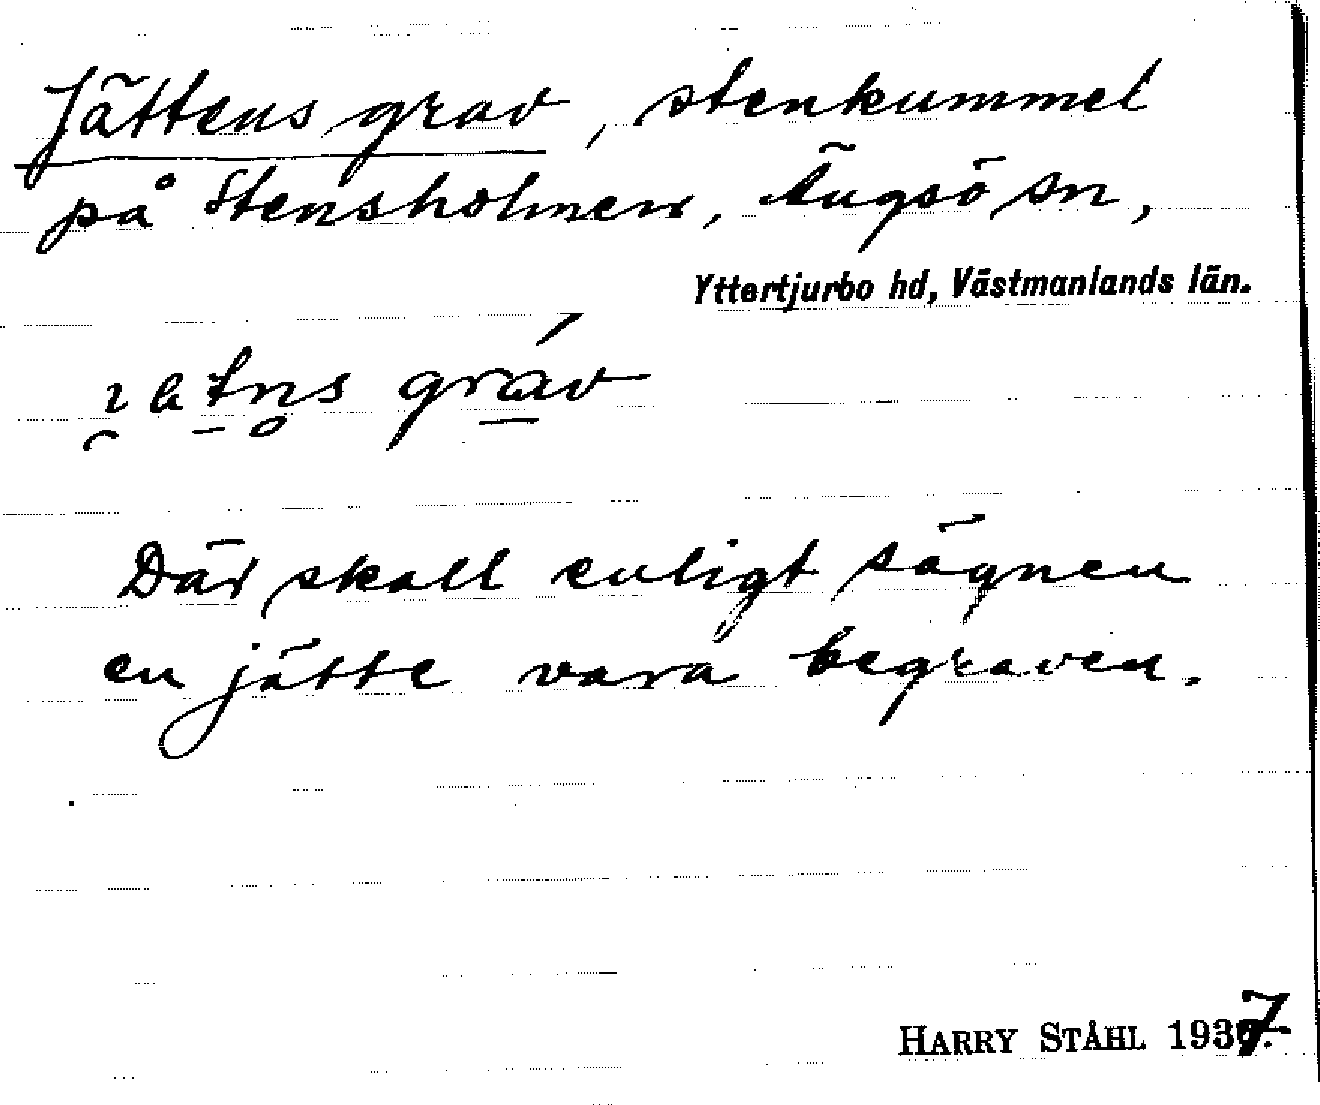 Jättens grav, stenkummel
på Stensholmen, Ängsö sn,
Yttertjurbo hd, Västmanlands län.
gráv
Där skall enligt sägnen
en jätte vara begraven.
HARRY STÅHL 1937